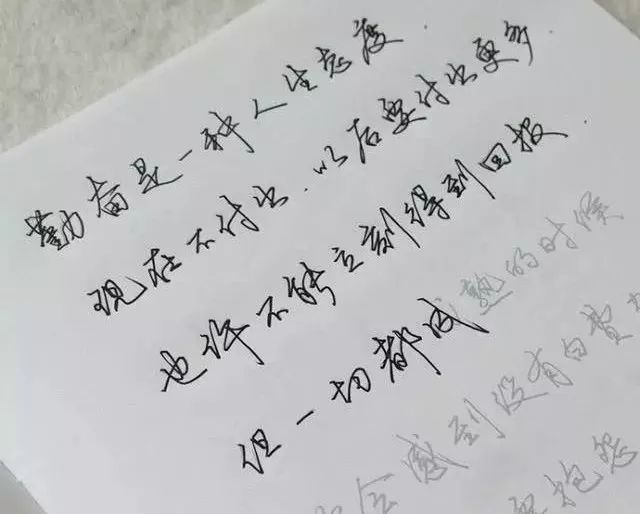 勤奋是一种人生态度
现在不付出.以后要付出更多
也许不能立刻得到回报
但一切都成熟的时候
会感到没有白费
要抱怨